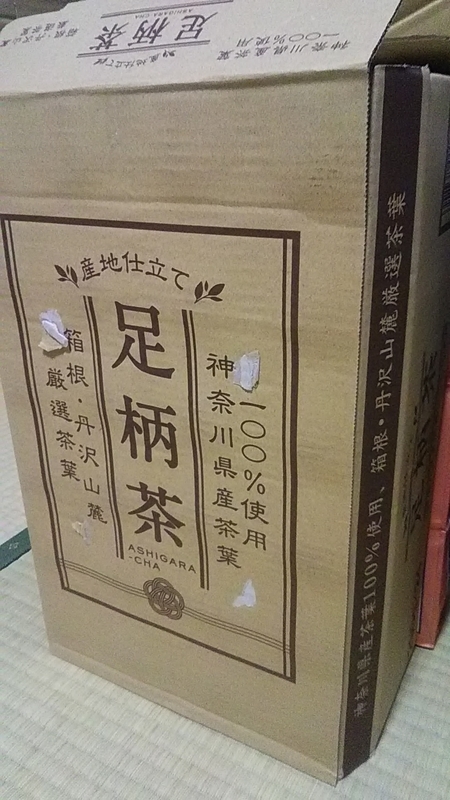 足柄茶
ASHIGARA-CHA
神奈川県産茶葉
一〇〇%使用
産地仕立て
一〇〇%使用
神奈川県産茶葉
足柄茶
ASHIGARA
-CHA
箱根・丹沢山麓
厳選茶葉
神奈川県産茶葉100%使用、箱根・丹沢山麓厳選茶葉